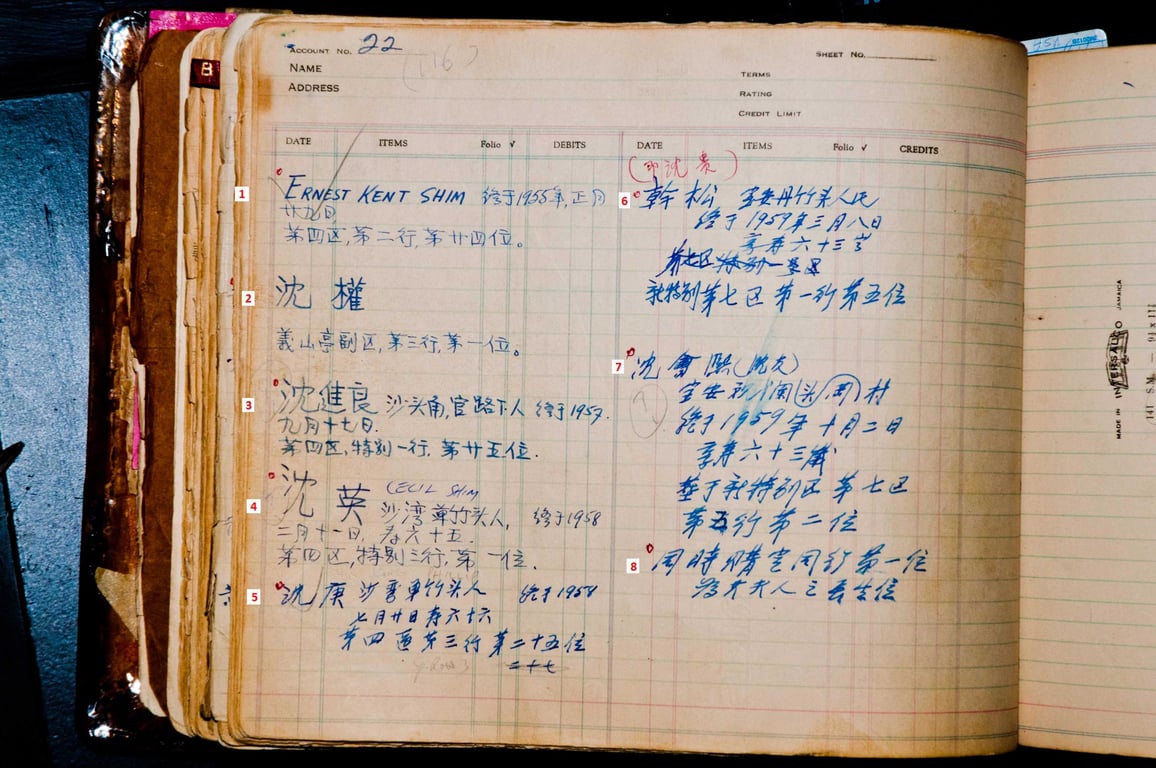 ACCOUNT NO. 22
(116)
SHEET NO.
NAME
ADDRESS
TERMS
RATING
CREDIT LIMIT
B
DATE ITEMS Folio √ DEBITS
DATE ITEMS Folio √ CREDITS
1 ERNEST KENT SHIM 终于1955年,正月
廿九日
第四区,第二行,第廿四位。
2 沈權
義山亭副区,第三行,第一位。
3 沈進良 沙头角,官路下人 终于1957.
九月十七日.
第四区,特别一行,第廿五位.
4 沈英 CECIL SHIM
沙湾單竹头人, 终于1958
二月十一日, 寿六十五.
第四区,特别三行,第一位.
5 沈庚 沙灣單竹头人 终于1958
七月廿日寿六十六
第四區第三行第二十五位
二十七
(即沈贵)
6 幹松 宝安丹竹头人氏
终于1959年三月八日
享寿六十三岁
第七区特别一
新特别第七区第一行第五位
7 沈會熙(沈友)
宝安 头 村
终于1959年十月二日
享寿六十三歲
葬于新特别区第七区
第五行第二位
8 同時購定同行第一位
为大夫人之寿生位
MADE IN INTERSALCO JAMAICA
141 S.M.